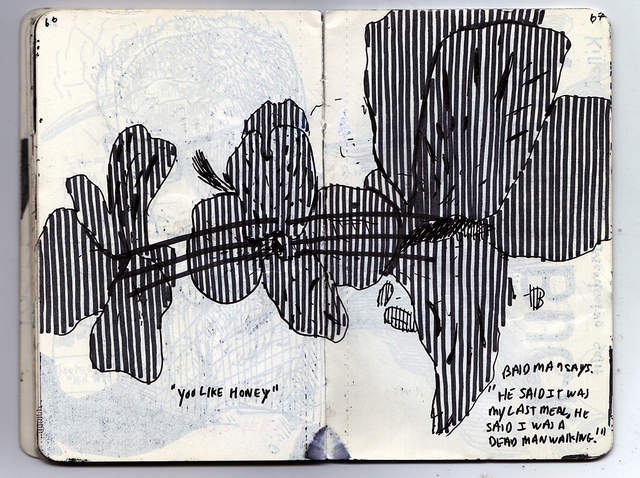 66
67
"YOU LIKE HONEY"
BAD MAN SAYS.
"HE SAID IT WAS
MY LAST MEAL, HE
SAID I WAS A
DEAD MAN WALKING."